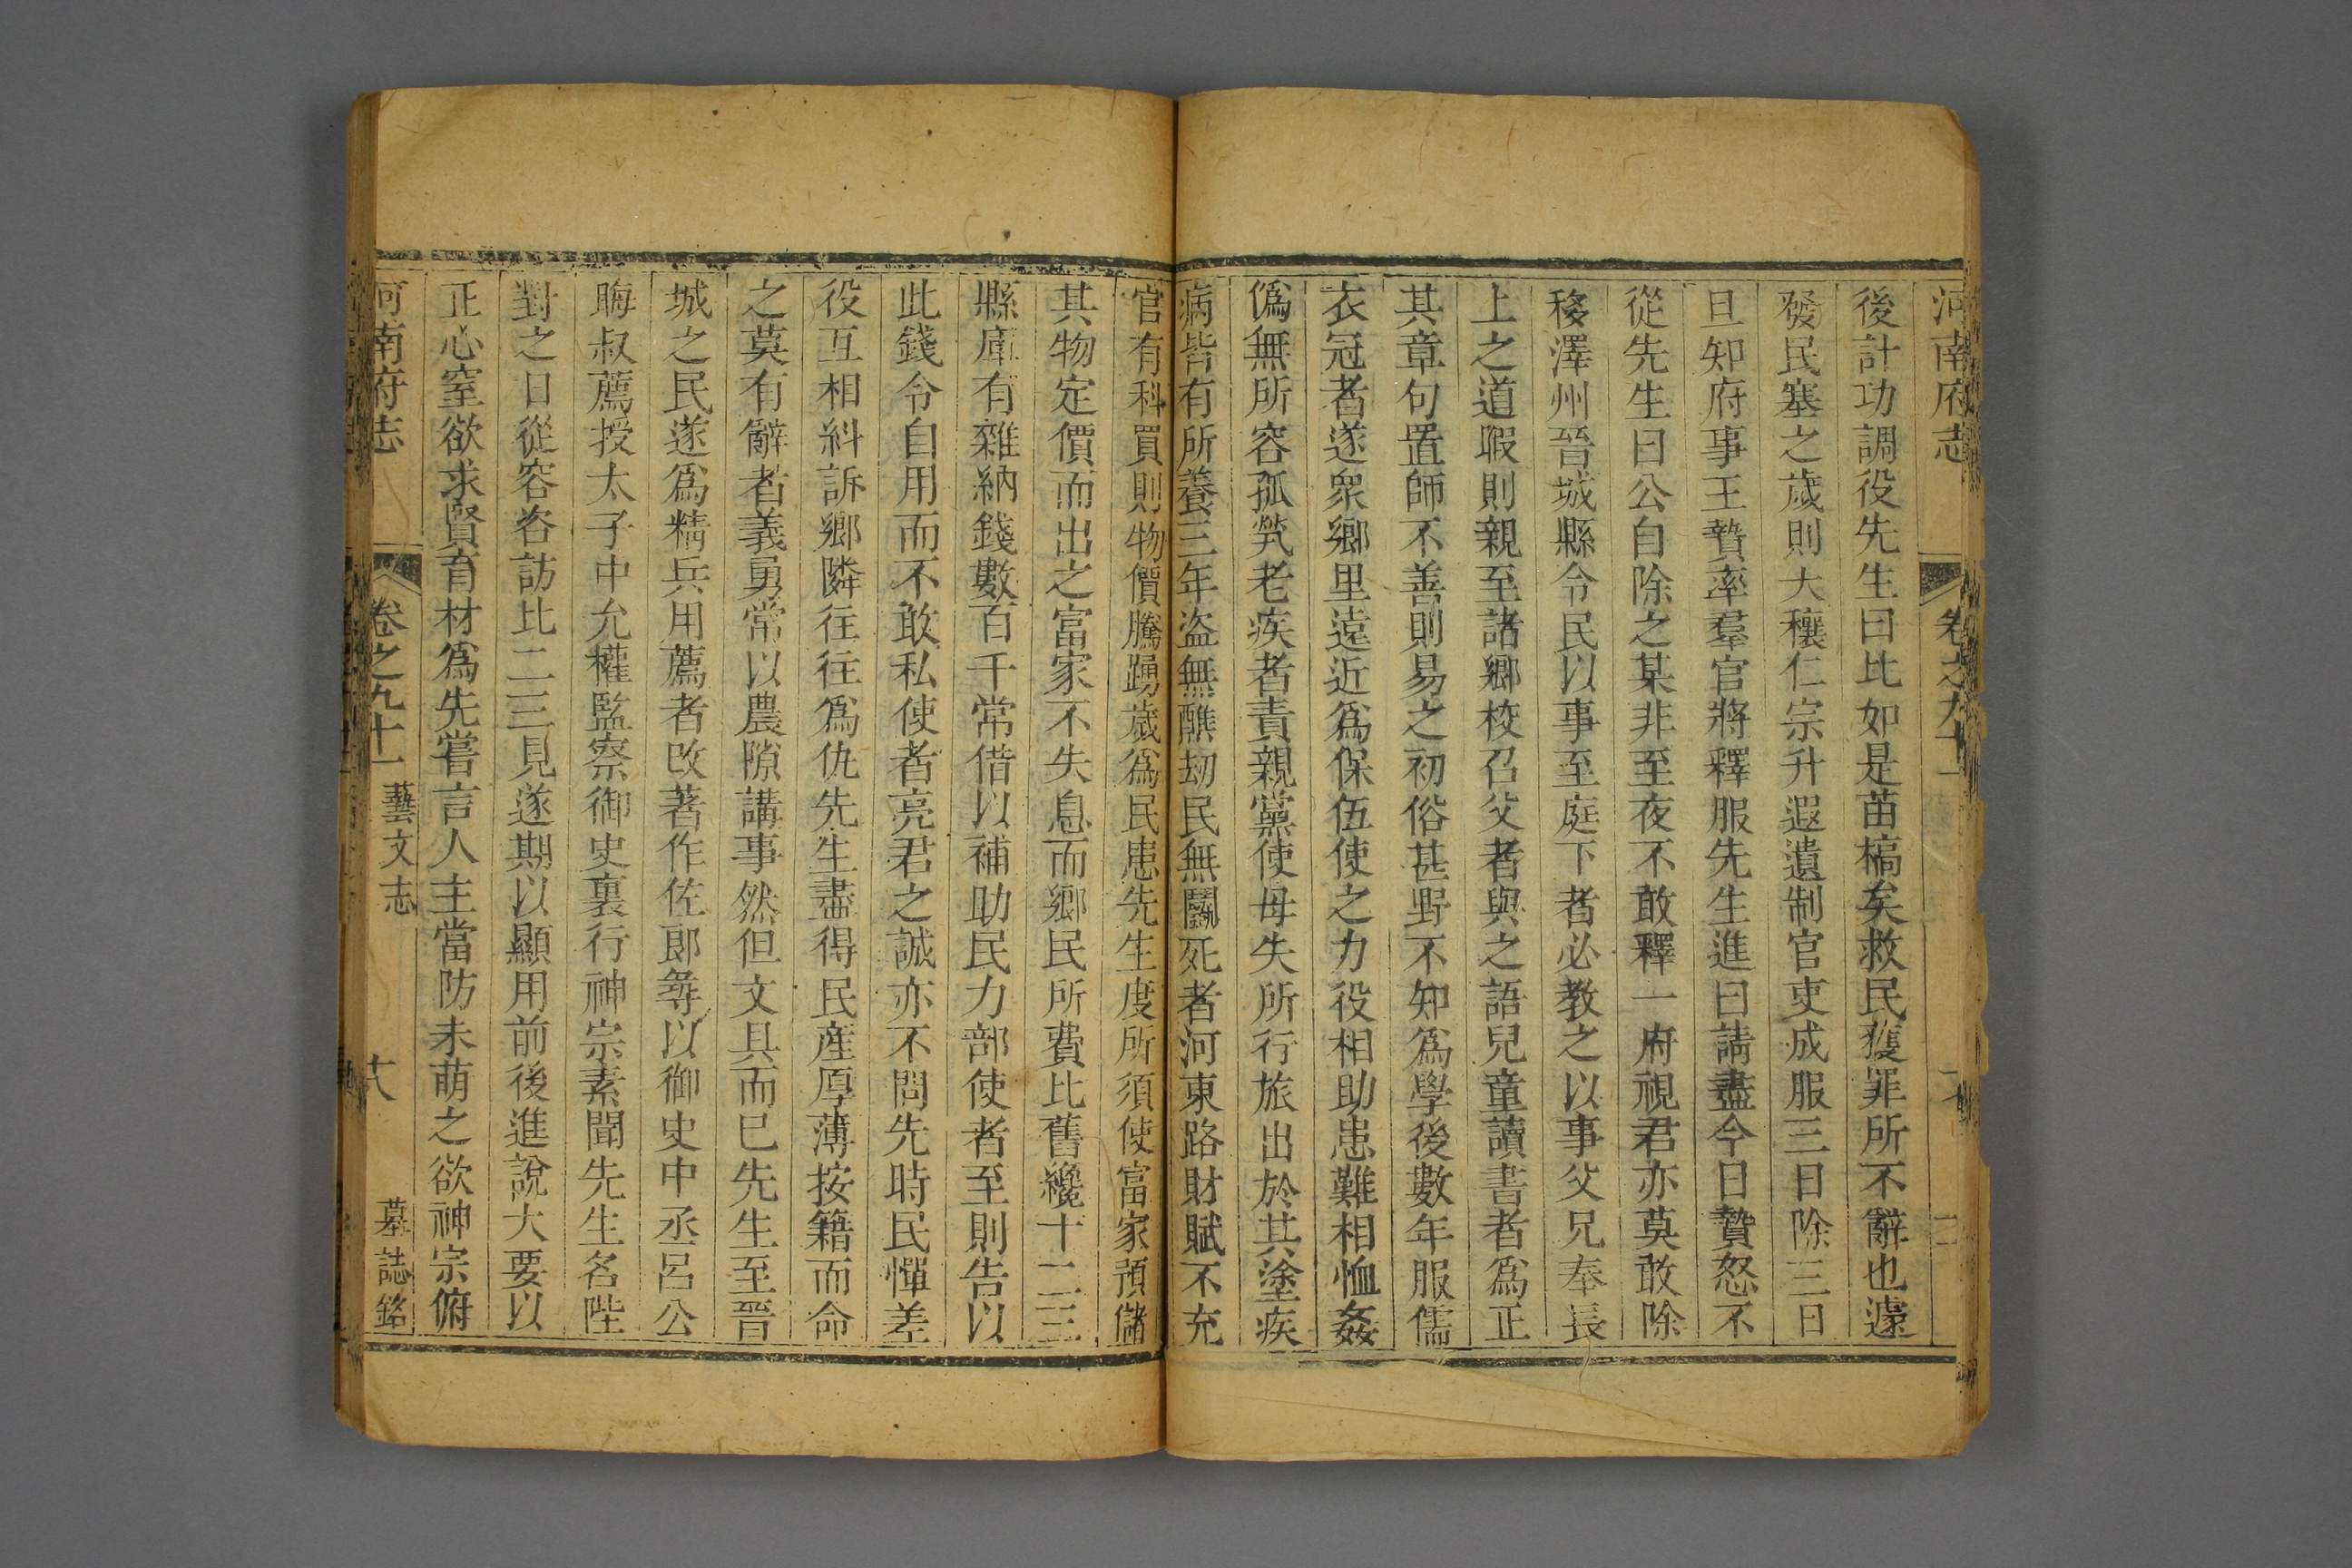 河南府志
卷之九十一
後計功調役先生曰比如是苗槁矣救民獲罪所不辭也遽
發民塞之歲則大穰仁宗升遐遺制官吏成服三日除三日
旦知府事王贄率羣官將釋服先生進曰請盡今日贄怒不
從先生曰公自除之某非至夜不敢釋一府視君亦莫敢除
移澤州晉城縣令民以事至庭下者必教之以事父兄奉長
上之道暇則親至諸鄉校召父老與之語兒童讀書者爲正
其章句置師不善則易之初俗甚野不知爲學後數年服儒
衣冠者遂衆鄉里遠近爲保伍使之力役相助患難相恤姦
僞無所容孤煢老疾者責親黨使毋失所行旅出於其塗疾
病皆有所養三年盜無醮刼民無鬬死者河東路財賦不充
官有科買則物價騰踴歲爲民患先生度所須使富家預儲
其物定價而出之富家不失息而鄉民所費比舊纔十二三
縣庫有雜納錢數百千常借以補助民力部使者至則告以
此錢令自用而不敢私使者亮君之誠亦不問先時民憚差
役互相糾訴鄉隣往往爲仇先生盡得民産厚薄按籍而命
之莫有辭者義勇常以農隙講事然但文具而已先生至晉
城之民遂爲精兵用薦者改著作佐郎尋以御史中丞呂公
晦叔薦授太子中允權監察御史裏行神宗素聞先生名陛
對之日從容咨訪比二三見遂期以顯用前後進說大要以
正心窒欲求賢育材爲先嘗言人主當防未萌之欲神宗俯
河南府志
卷之九十一
藝文志
十八
墓誌銘